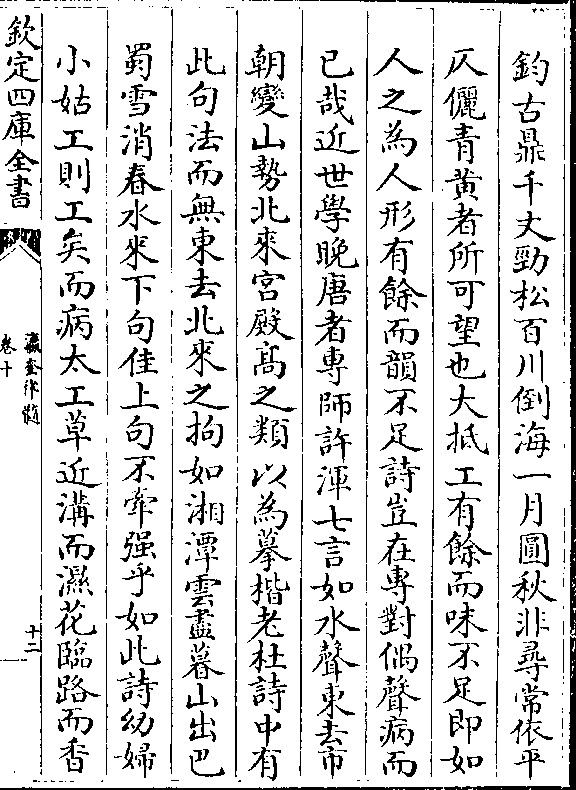 鈞古鼎千丈勁松百川倒海一月圓秋非尋常依平
仄儷青黄者所可望也大抵工有餘而味不足即如
人之為人形有餘而韻不足詩豈在専對偶聲病而
已哉近世學晚唐者専師許渾七言如水聲東去市
朝變山勢北來宫殿髙之類以為摹楷老杜詩中有
此句法而無東去北來之拘如湘潭雲盡暮山出巴
蜀雪消春水來下句佳上句不牽强乎如此詩幼婦
小姑工則工矣而病太工草近溝而濕花臨路而香
欽定四庫全書
瀛奎律髓
卷十
十二